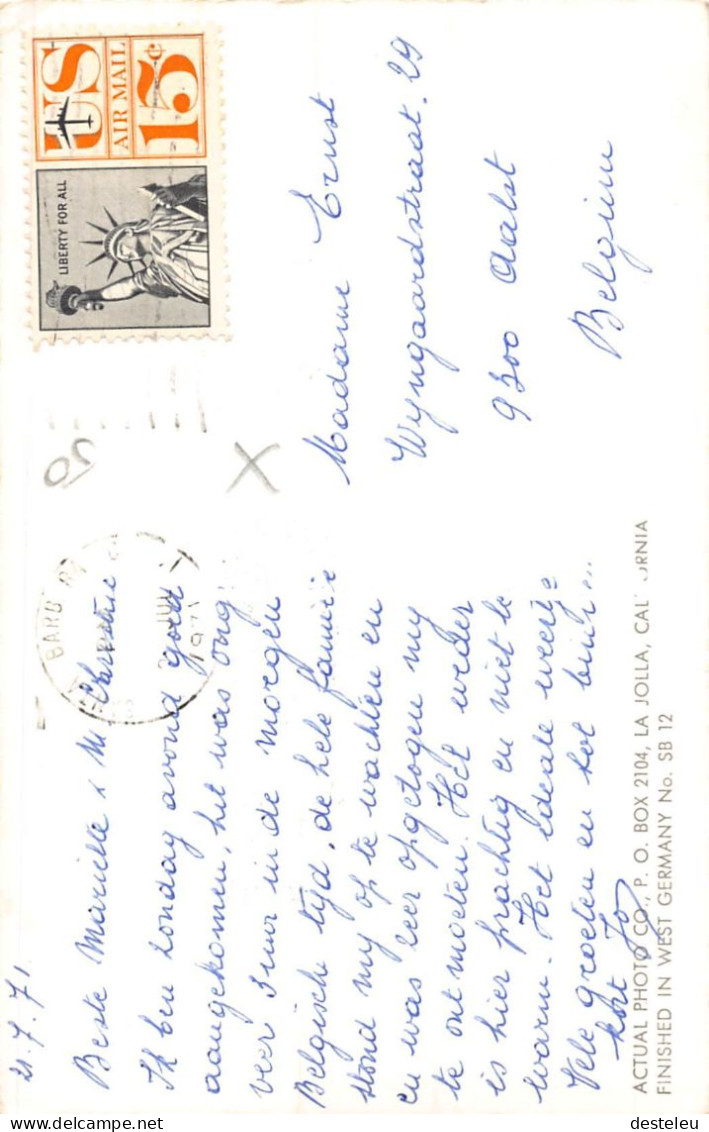 US
AIR MAIL
15¢
LIBERTY FOR ALL
21.7.71
Beste Marielle & M Christine
Ik ben zondag avond goed
aangekomen, het was onge
veer 3 uur in de morgen
Belgische tijd, de hele familie
stond my op te wachten en
en was zeer opgetogen my
te ontmoeten. Het weder
is hier prachtig en niet te
warm. Het ideale weer!
Vele groeten en tot binn...
kort Jo
Madame Ernst
Wyngaardstraat. 29
9300 Aalst
Belgium
JUL
1971
ACTUAL PHOTO CO., P. O. BOX 2104, LA JOLLA, CAL ORNIA
FINISHED IN WEST GERMANY No. SB 12
© desteleu